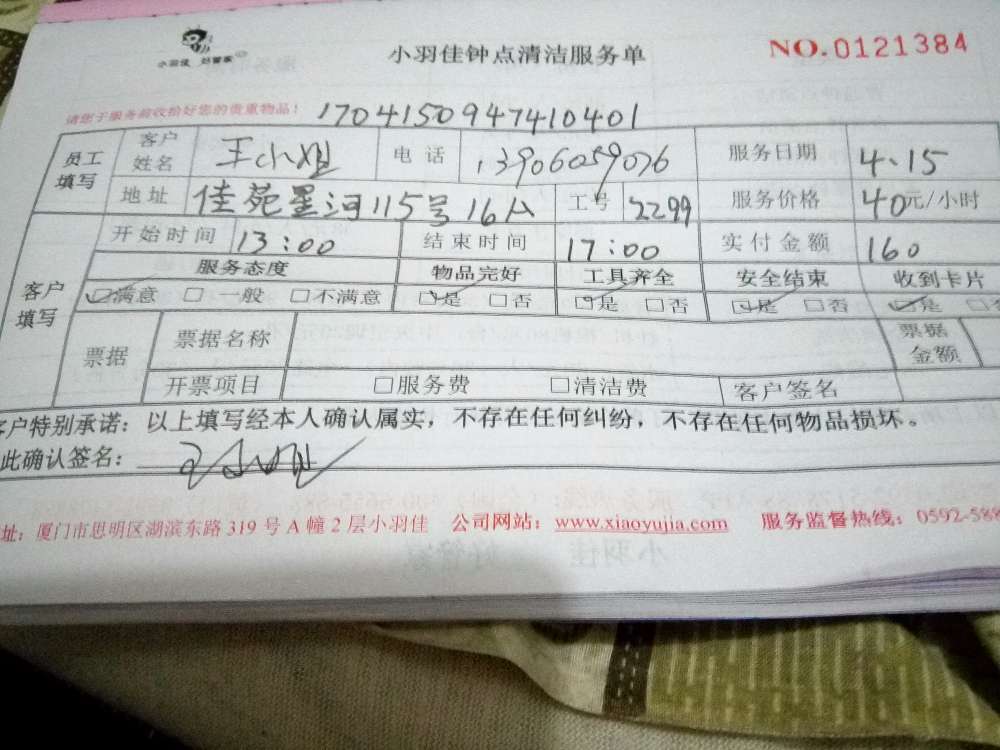 小羽佳 好管家
小羽佳钟点清洁服务单
NO.0121384
请您于服务前收拾好您的贵重物品!
1704150947410401
员工填写 客户姓名 王小姐 电话 13906059076 服务日期 4.15
地址 佳苑星河115号16A 工号 2299 服务价格 40元/小时
客户填写 开始时间 13:00 结束时间 17:00 实付金额 160
服务态度 物品完好 工具齐全 安全结束 收到卡片
☑满意 □一般 □不满意 ☑是 □否 ☑是 □否 ☑是 □否 ☑是 □
票据 票据名称 票据金额
开票项目 □服务费 □清洁费 客户签名
客户特别承诺:以上填写经本人确认属实,不存在任何纠纷,不存在任何物品损坏。
此确认签名: 王小姐
址:厦门市思明区湖滨东路319号A幢2层小羽佳 公司网站:www.xiaoyujia.com 服务监督热线:0592-588